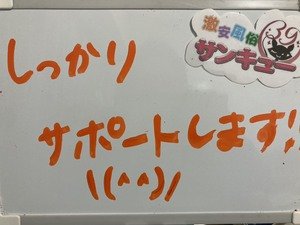 激安風俗
サンキュー
39
しっかり
サポートします!!
\(^^)/